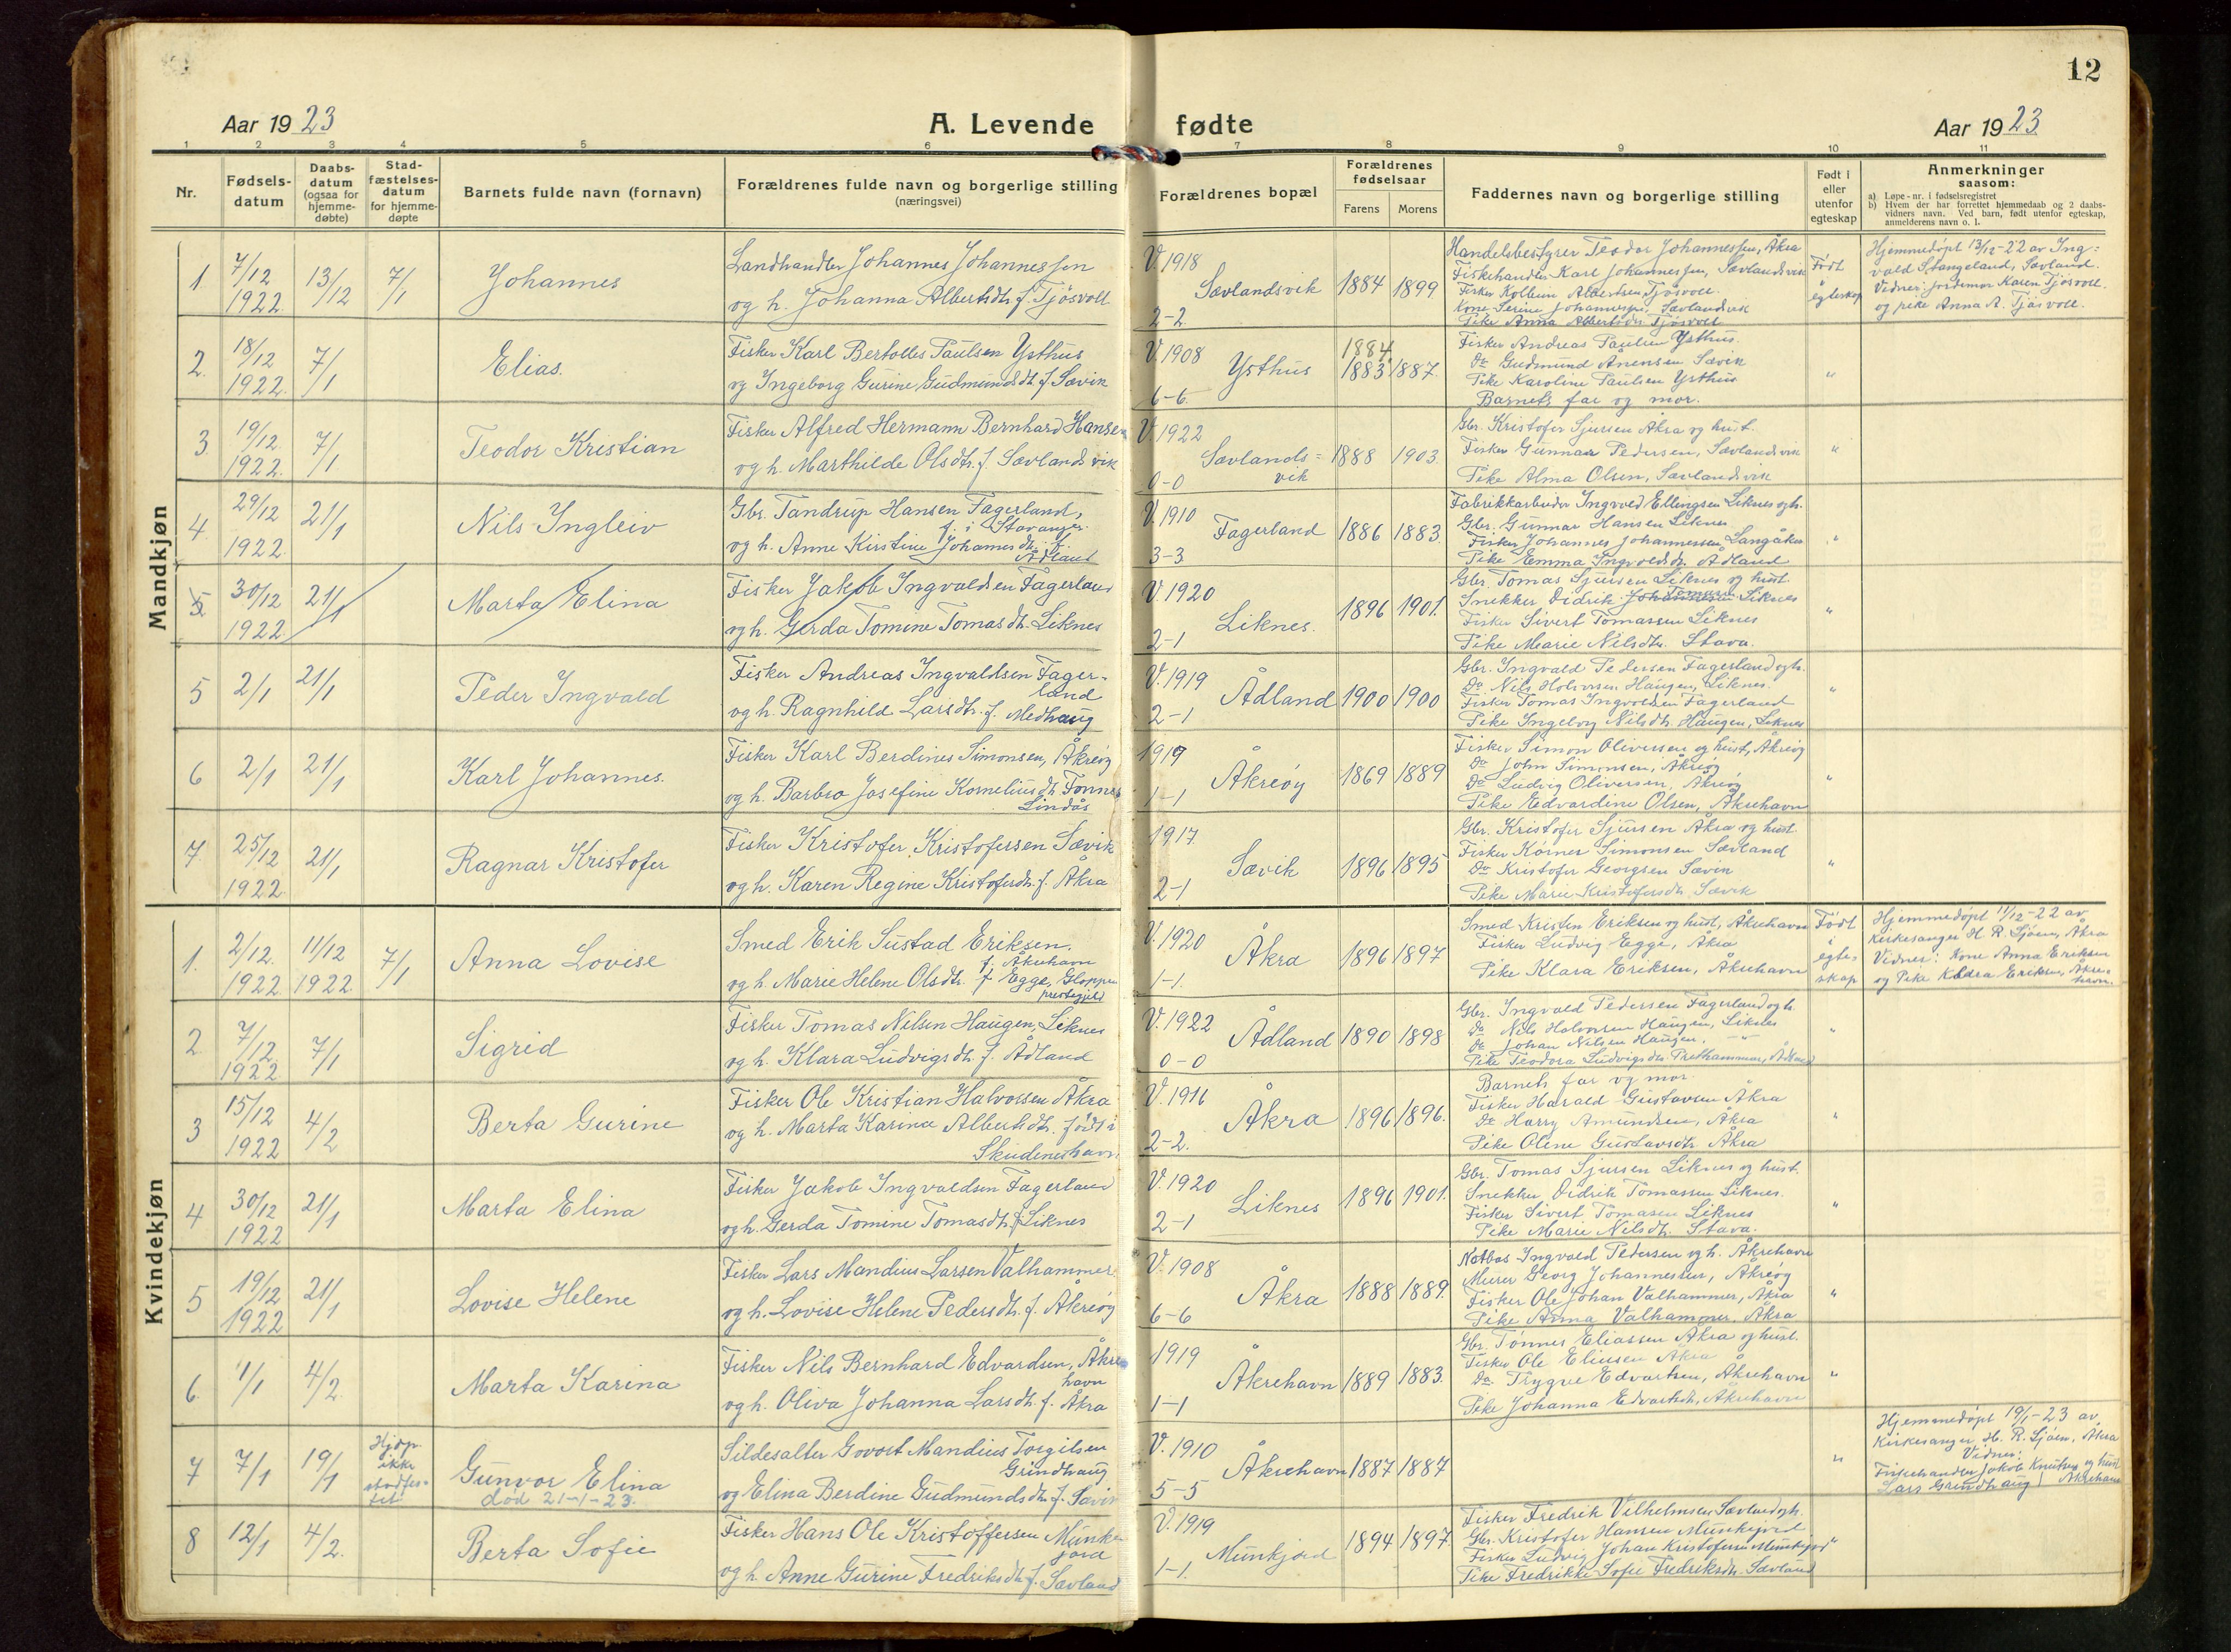 12
Aar 1923
A. Levende fødte
Aar 1923
1 2 3 4 5 6 7 8 9 10 11
Nr.
Fødsels-
datum
Daabs-
datum
(ogsaa for
hjemme-
døbte)
Stad-
fæstelses-
datum
for hjemme-
døpte
Barnets fulde navn (fornavn)
Forældrenes fulde navn og borgerlige stilling
(næringsvei)
Forældrenes bopæl
Forældrenes
fødselsaar
Farens
Morens
Faddernes navn og borgerlige stilling
Født i
eller
utenfor
egteskap
Anmerkninger
saasom:
a) Løpe-nr. i fødselsregistret
b) Hvem der har forrettet hjemmedaab og 2 daabs-
vidners navn. Ved barn, født utenfor egteskap,
anmelderens navn o. l.
Mandkjøn
1
7/12
1922
13/12
7/1
Johannes
Landhandler Johannes Johannessen
og h. Johanna Albertsdtr. f. Tjösvoll
V. 1918
2-2
Sævlandsvik
1884
1899
Handelsbestyrer Teodor Johannessen, Åkra
Fiskehandler Karl Johannessen, Sævlandsvik
Fisker Kolbein Albertsen Tjösvoll
Kone Serine Johannessen, Sævlandsvik
Pike Anna Albertsdtr. Tjösvoll
Født
i
egteskap
Hjemmedöpt 13/12-22 av Ing=
vald Stangeland, Sævland.
Vidner: Jordmor Karen Tjösvoll.
og pike Anna A. Tjösvoll.
2.
18/12
1922.
7/1
Elias.
Fisker Karl Bertolles Paulsen Ysthus
og Ingeborg Gurine Gudmundsdt. f. Sævik
V. 1908
6-6.
Ysthus
1884
1883
1887.
Fisker Andreas Paulsen Ysthus.
Do Gudmund Anensen Sævik
Pike Karoline Paulsen Ysthus
Barnets far og mor.
"
3.
19/12.
1922.
7/1
Teodor Kristian
Fisker Alfred Hermann Bernhard Hansen
og h. Marthilde Olsdtr. f. Sævlandsvik
V. 1922
0-0
Sævlands=
vik
1888
1903.
Gbr. Kristofer Sjursen Åkra og hust.
Fisker Gunnar Pedersen, Sævlandsvik
Pike Alma Olsen, Sævlandsvik
"
4.
29/12
1922.
21/1
Nils Ingleiv
Gbr. Tandrup Hansen Fagerland,
f. i Stavanger.
og h. Anne Kirstine Johannesdtr. f.
Ådland
V. 1910
3-3.
Fagerland
1886
1883.
Fabrikkarbeider Ingvald Ellingsen Liknes og h.
Gbr. Gunnar Hansen Liknes
Fisker Johannes Johannessen Langåker
Pike Emma Ingvaldsdtr. Ådland
"
5.
30/12
1922.
21/1
Marta Elina
Fisker Jakob Ingvaldsen Fagerland
og h. Gerda Tomine Tomasdtr. Liknes
V. 1920
2-1
Liknes.
1896
1901.
Gbr. Tomas Sjursen Liknes og hust.
Snekker Didrik Johannessen Tomassen Liknes
Fisker Sivert Tomassen Liknes
Pike Marie Nilsdtr. Stava.
"
5
2/1
21/1
Peder Ingvald
Fisker Andreas Ingvaldsen Fager-
land
og h. Ragnhild Larsdtr. f. Medhaug
V. 1919
2-1
Ådland
1900
1900
Gbr. Ingvald Pedersen Fagerland og h.
Do Nils Holvorsen Haugen, Liknes
Fisker Tomas Ingvaldsen Fagerland
Pike Ingeborg Nilsdtr. Haugen, Liknes
"
6
2/1
21/1
Karl Johannes.
Fisker Karl Berdines Simonsen, Åkreöy
og h. Barbro Josefine Korneliusdtr. Fonnes
Lindås
1919
1-1
Åkreöy
1869
1889
Fisker Simon Oliversen og hust, Åkreöy
Do John Simonsen, Åkreöy
Do Ludvig Oliversen, Åkreöy
Pike Edvardine Olsen, Åkrehavn
"
7.
25/12
1922.
21/1
Ragnar Kristofer
Fisker Kristofer Kristofersen Sævik
og h. Karen Regine Kristofersdtr. f. Åkra
1917.
2-1
Sævik
1896
1895
Gbr. Kristofer Sjursen Åkra og hust.
Fisker Körner Simonsen Sævland
Do Kristofer Georgsen Sævik
Pike Marie Kristofersdtr. Sævik
"
Kvindekjøn
1.
2/12.
1922
11/12
1922
7/1
Anna Lovise
Smed Erik Sustad Eriksen.
f. Åkrehavn
og h. Marie Helene Olsdtr. f. Egge, Gloppen
prestegjeld
V. 1920
1-1.
Åkra
1896
1897
Smed Kristen Eriksen og hust, Åkrehavn
Fisker Ludvig Egge, Åkra
Pike Klara Eriksen, Åkrehavn
Født
i
egte-
skap
Hjemmedöpt 11/12-22 av
Kirkesanger H. R. Sjöen, Åkra
Vidner: Kone Anna Eriksen
og Pike Klara Eriksen, Åkre-
havn.
2.
7/12
1922
7/1
Sigrid
Fisker Tomas Nilsen Haugen, Liknes
og h. Klara Ludvigsdtr. f. Ådland
V. 1922
0-0
Ådland
1890
1898
Gbr. Ingvald Pedersen Fagerland og h.
Do Nils Holvorsen Haugen, Liknes
Do Johan Nilsen Haugen.
Pike Teodora Ludvigsdtr. Trethammer, Ådland
"
3
15/12
1922
4/2
Berta Gurine
Fisker Ole Kristian Halvorsen Åkra
og h. Marta Karina Albertsdtr. født i
Skudeneshavn
V. 1916
2-2.
Åkra
1896
1896.
Barnets far og mor
Fisker Harald Gustavsen Åkra
Do Harry Amundsen, Åkra
Pike Olene Gustavsdtr. Åkra
"
4
30/12
1922
21/1
Marta Elina
Fisker Jakob Ingvaldsen Fagerland
og h. Gerda Tomine Tomasdtr. f. Liknes
V. 1920
2-1
Liknes
1896
1901.
Gbr. Tomas Sjursen Liknes og hust.
Snekker Didrik Tomassen Liknes.
Fisker Sivert Tomassen Liknes
Pike Marie Nilsdtr. Stava.
"
5
19/12
1922
21/1
Lovise Helene
Fisker Lars Mandius Larsen Valhammer
og h. Lovise Helene Pedersdtr. f. Åkreöy
V. 1908
6-6
Åkra
1888
1889.
Notbas Ingvald Pedersen og h. Åkrehavn
Murer Georg Johannessen, Åkreöy
Fisker Ole Johan Valhammer, Åkra
Pike Anna Valhammer, Åkra
"
6.
1/1
4/2.
Marta Karina
Fisker Nils Bernhard Edvardsen, Åkre
havn
og h. Oliva Johanna Larsdtr. f. Åkra
1919
1-1
Åkrehavn
1889
1883.
Gbr. Tönnes Eliassen Åkra og hust.
Fisker Ole Eliasen Åkra
Do Trygve Edvartsen, Åkrehavn
Pike Johanna Edvartsdtr, Åkrehavn
"
7
7/1
19/1
Hjdp.
ikke
stadfes-
tet
Gunvor Elina
død 21-1-23.
Sildesalter Govort Mandius Torgilsen
Grindhaug
og Elina Berdine Gudmundsdtr. f. Sævik
V. 1910
5-5
Åkrehavn
1887
1887
"
Hjemmedöpt 19/1-23 av
Kirkesanger H. R. Sjöen, Åkra
Vidner:
Fiskehandler Jakob Knutsen og hust
Lars Grindhaug, Åkrehavn
8
12/1
4/2.
Berta Sofie
Fisker Hans Ole Kristoffersen Munke
jord
og h. Anne Gurine Fredriksdtr. f. Sævland
V. 1919
1-1.
Munkjord
1894
1897.
Fisker Fredrik Vilhelmsen Sævland og h.
Gbr. Kristofer Hansen Munkejord
Fisker Ludvig Johan Kristofersen Munkejord
Pike Fredrikke Sofie Fredriksdtr. Sævland
"